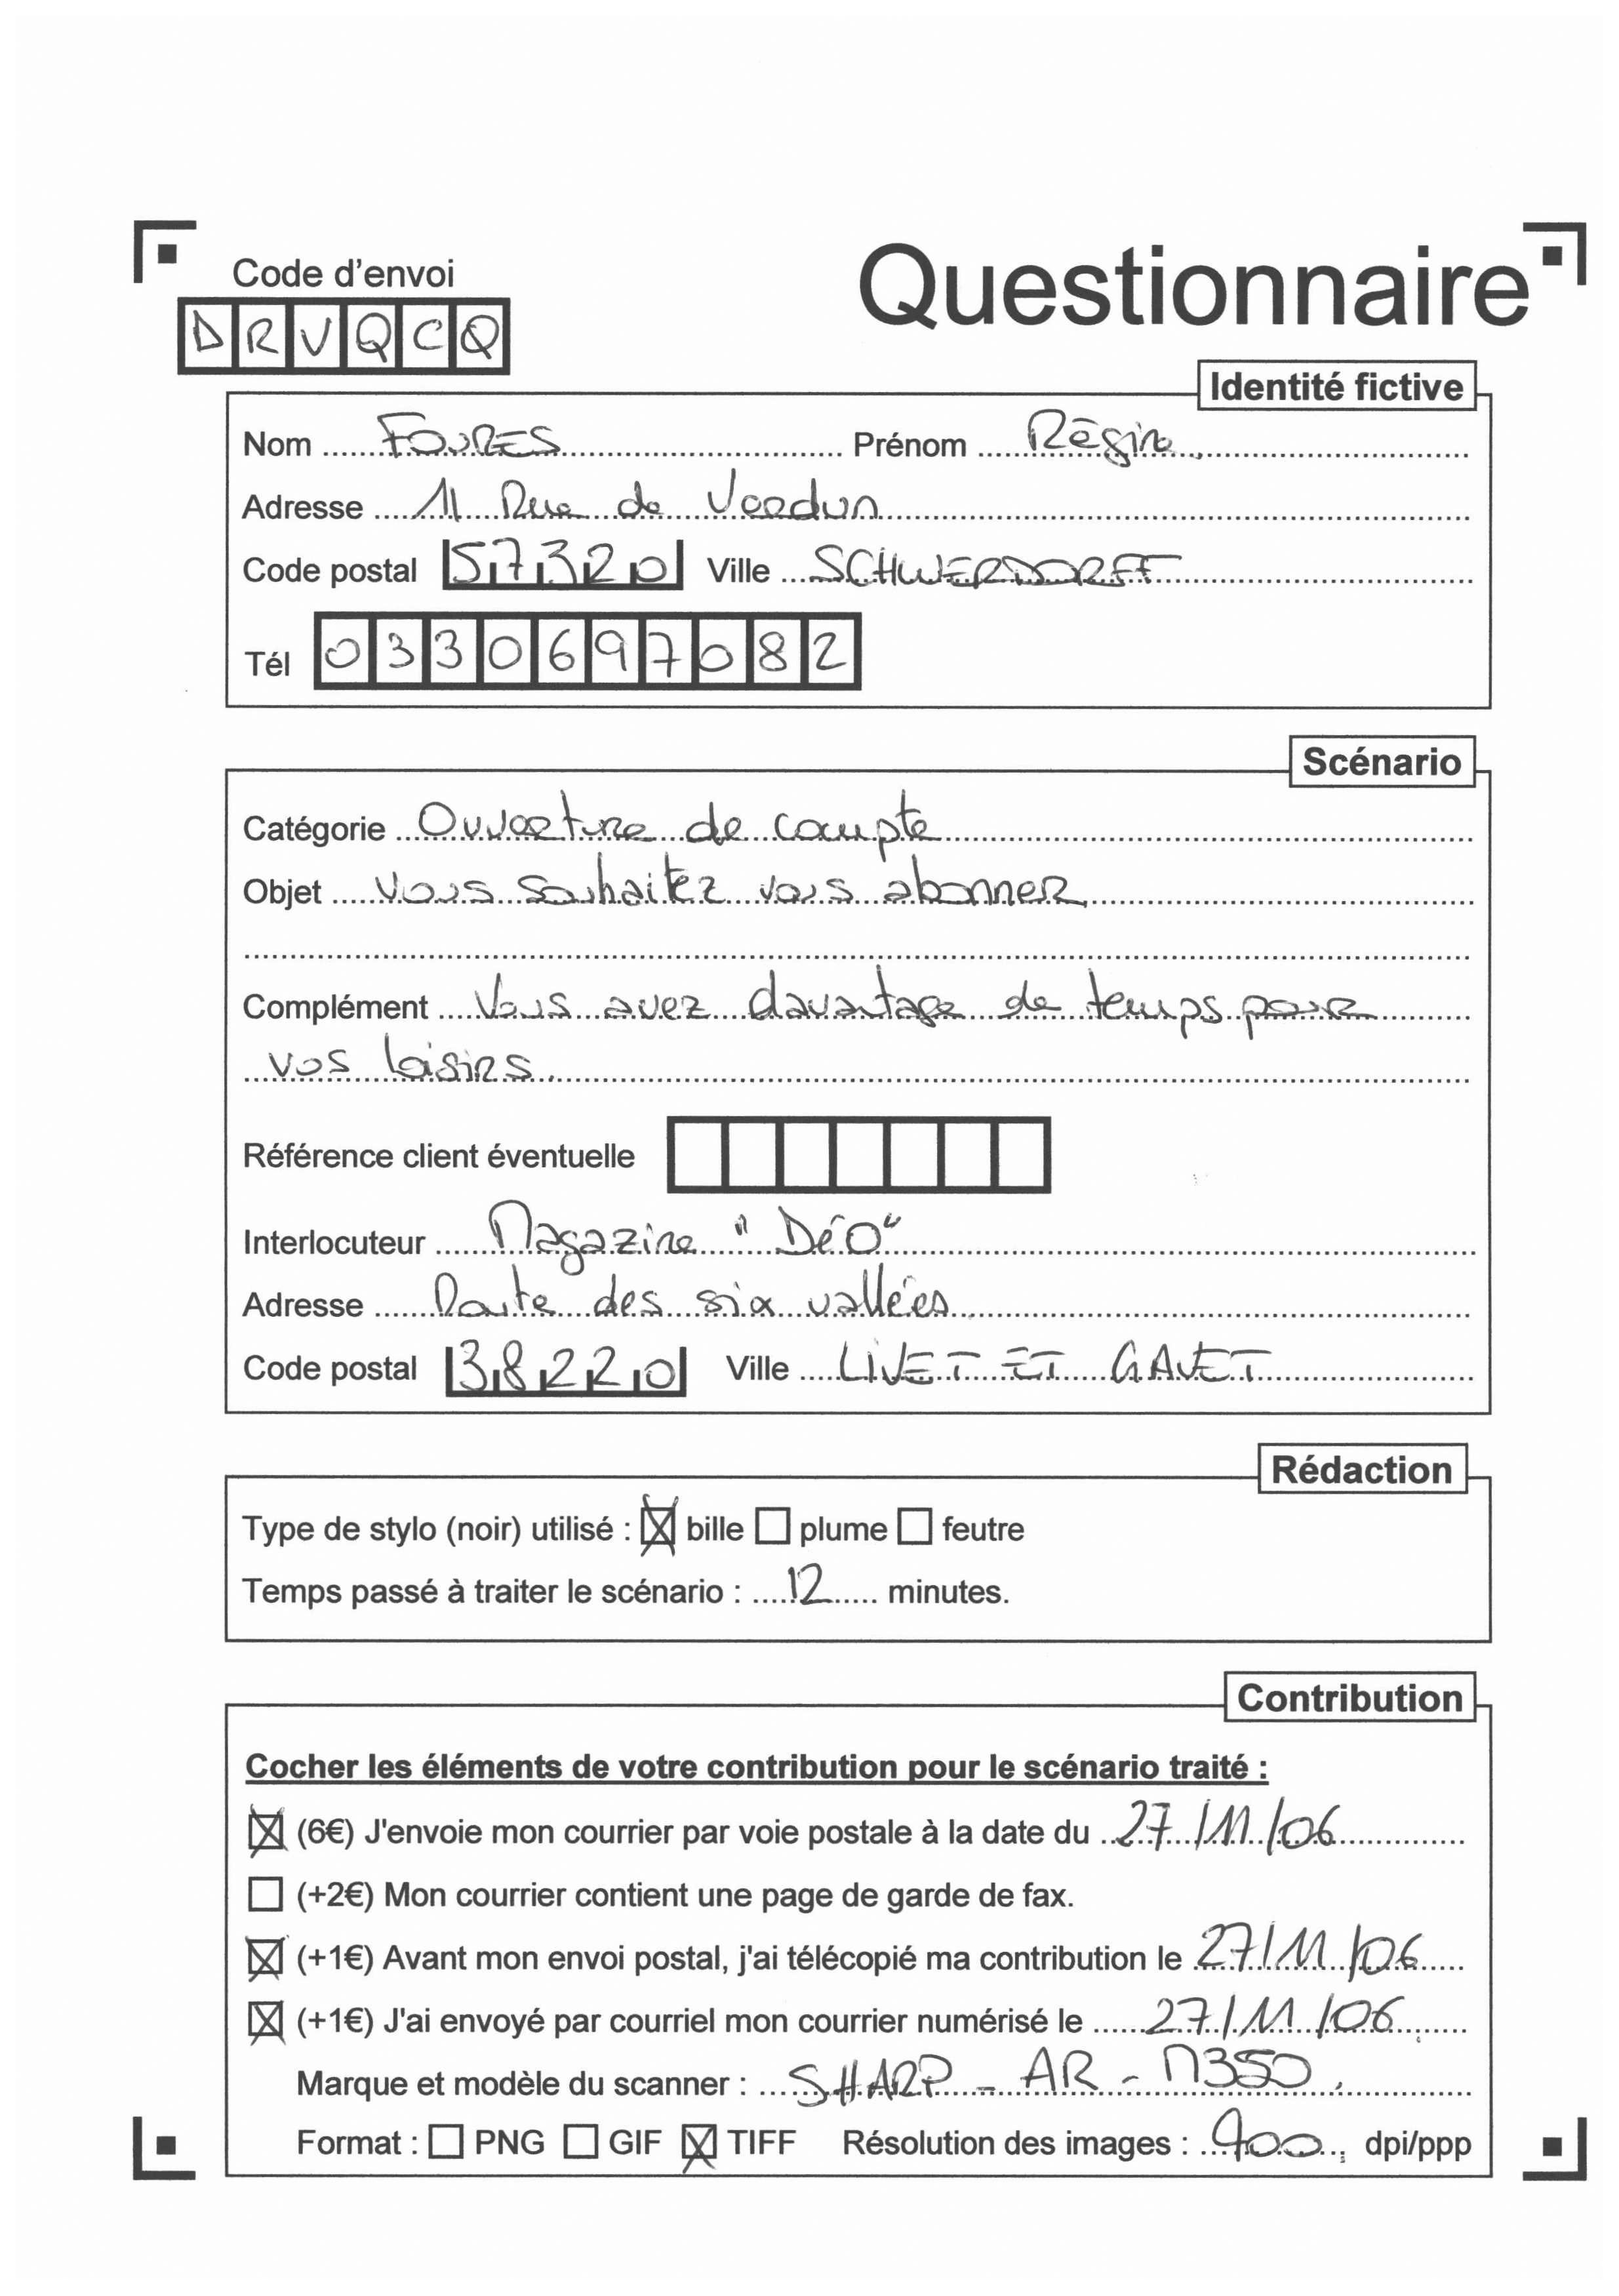 Code d'envoi
Questionnaire
DRVQCQ
Identité fictive
Nom FOURES Prénom Régine
Adresse 11 Rue de Verdun
Code postal 57320 Ville SCHWERDORFF
Tél 0330697082
Scénario
Catégorie Ouverture de compte
Objet Vous souhaitez vous abonner
Complément Vous avez davantage de temps pour
vos loisirs.
Référence client éventuelle
Interlocuteur Magazine "Déo"
Adresse Route des six vallées
Code postal 38220 Ville LIVET ET GAVET
Rédaction
Type de stylo (noir) utilisé : bille plume feutre
Temps passé à traiter le scénario : 12 minutes.
Contribution
Cocher les éléments de votre contribution pour le scénario traité :
(6€) J'envoie mon courrier par voie postale à la date du 27/11/06
(+2€) Mon courrier contient une page de garde de fax.
(+1€) Avant mon envoi postal, j'ai télécopié ma contribution le 27/11/06
(+1€) J'ai envoyé par courriel mon courrier numérisé le 27/11/06
Marque et modèle du scanner : SHARP - AR - M350
Format : PNG GIF TIFF Résolution des images : 400 dpi/ppp